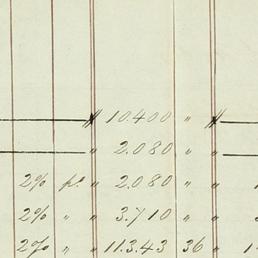 # 10.400 " #
" 2.080 " "
2% p.ͦ " 2.080 " "
2% " " 3.710 " "
2% " " 11.343 36 "